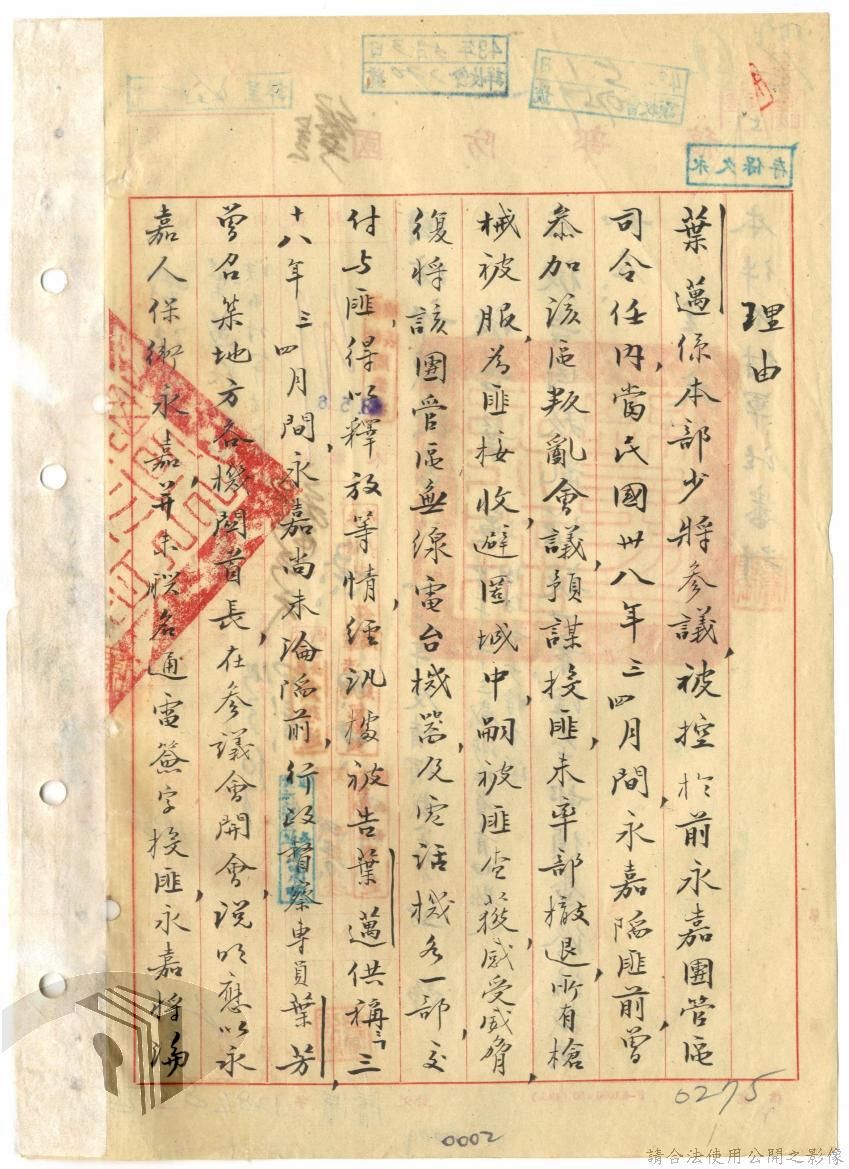 永久保存
理由
葉邁係本部少將參議,被控於前永嘉團管區
司令任內,當民國卅八年三四月間,永嘉陷匪前曾
參加該區叛亂會議,預謀投匪,未率部撤退,所有槍
械被服,為匪接收,避匿城中,嗣被匪查獲,威受威脅,
復將該團管區無線電台機器及電話機各一部,交
付与匪,得以釋放等情,經訊據被告葉邁供稱「三
十八年三四月間,永嘉尚未淪陷前,行政督察專員葉芳,
曾召集地方各機關首長,在參議會開會,說明應以永
嘉人保衛永嘉,并未聯名通電簽字投匪,永嘉將淪
0275
0002
請合法使用公開之影像